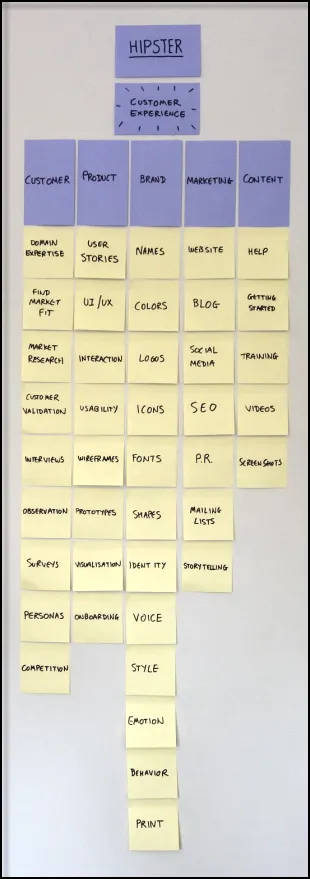 HIPSTER
CUSTOMER
EXPERIENCE
CUSTOMER
PRODUCT
BRAND
MARKETING
CONTENT
DOMAIN
EXPERTISE
USER
STORIES
NAMES
WEBSITE
HELP
FIND
MARKET
FIT
UI/UX
COLORS
BLOG
GETTING
STARTED
MARKET
RESEARCH
INTERACTION
LOGOS
SOCIAL
MEDIA
TRAINING
CUSTOMER
VALIDATION
USABILITY
ICONS
SEO
VIDEOS
INTERVIEWS
WIREFRAMES
FONTS
P.R.
SCREENSHOTS
OBSERVATION
PROTOTYPES
SHAPES
MAILING
LISTS
SURVEYS
VISUALISATION
IDENTITY
STORYTELLING
PERSONAS
ONBOARDING
VOICE
COMPETITION
STYLE
EMOTION
BEHAVIOR
PRINT